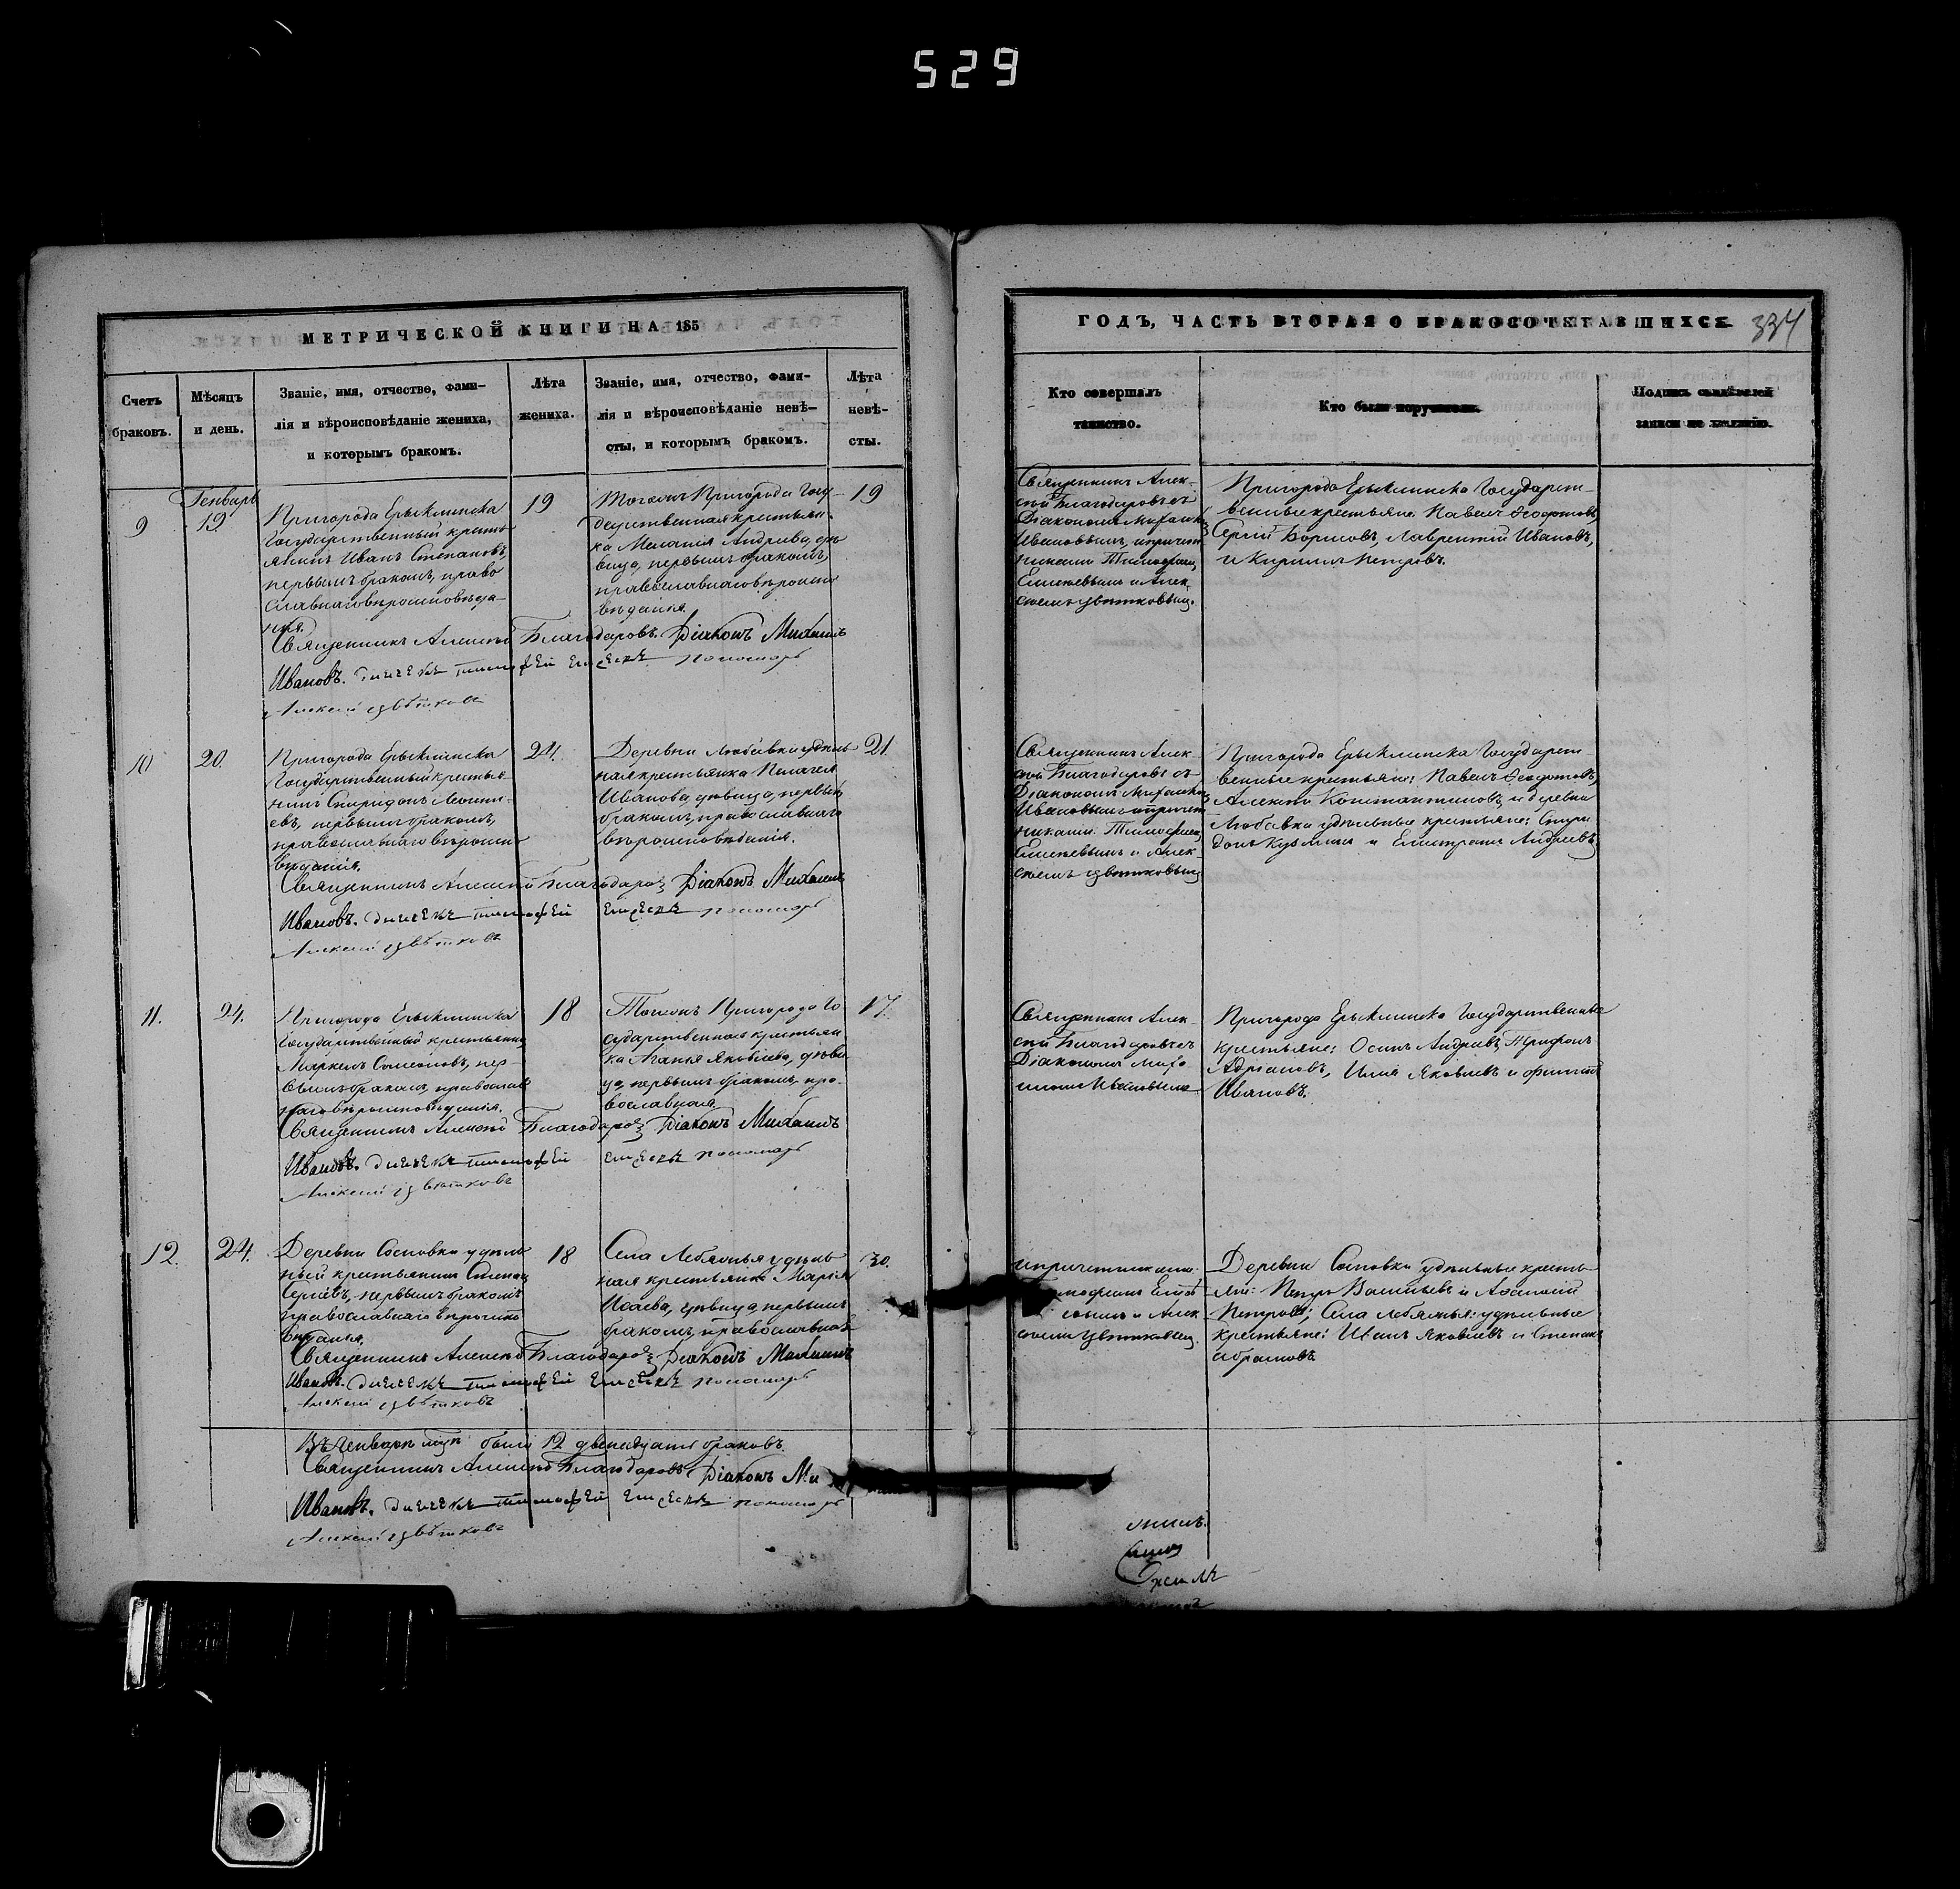 529
МЕТРИЧЕСКОЙ КНИГИ НА 185
ГОДЪ, ЧАСТЬ ВТОРАЯ О БРАКОСОЧЕТАВШИХСЯ.
334
Счетъ
браковъ.
Мѣсяцъ
и день.
Званіе, имя, отчество, фами-
лія и вѣроисповѣданіе жениха,
и которымъ бракомъ.
Лѣта
жениха.
Званіе, имя, отчество, фами-
лія и вѣроисповѣданіе невѣ-
сты, и которымъ бракомъ.
Лѣта
невѣ-
сты.
Кто совершалъ
таинство.
Кто были поручители.
Подпись свидѣтелей
записи по желанію.
9
Генварь
19
Пригорода Ерыклинска
Государственный кресть
янинъ Иванъ Степановъ,
первымъ бракомъ, право
славнаго вѣроисповѣда-
нія.
19
Тогожъ Пригорода Госу-
дарственная крестьян-
ка Меланія Андреева, дѣ
вица, первымъ бракомъ,
православнаго вѣроиспо
вѣданія.
19
Священникъ Алек-
сѣй Благодаровъ съ
Діакономъ Михаиломъ
Ивановымъ, и причет
никами Тимофеемъ
и Алек-
сѣемъ Цвѣтковымъ.
Пригорода Ерыклинска Государст-
венные крестьяне: Павелъ Ѳедотовъ,
Сергій Борисовъ, Лаврентій Ивановъ,
и Кирилъ Петровъ.
Священникъ Алексѣй Благодаровъ. Діаконъ Михаилъ
Ивановъ. дьячекъ тимофей пономарь
Алексей цвѣтковъ
10
20.
Пригорода Ерыклинска
Государственный крестья-
нинъ Спиридонъ Леонти-
евъ, первымъ бракомъ,
православнаго вѣроиспо
вѣданія.
24.
Деревни Любавки удѣль
ная крестьянка Пелагея
Иванова, дѣвица, первымъ
бракомъ, православнаго
вѣроисповѣданія.
21
Священникъ Алек
сѣй Благодаровъ съ
Діакономъ Михаиломъ
Ивановымъ и причет
никами: Тимофеемъ
и Алек-
сѣемъ Цвѣтковымъ
Пригорода Ерыклинска Государст-
венные крестьяне: Павелъ Ѳедотовъ,
Алексѣй Константиновъ, и деревни
Любавки удѣльные крестьяне: Спири
донъ Кузминъ и Андреевъ
Священникъ Алексѣй Благодаровъ Діаконъ Михаилъ
Ивановъ. дьячекъ тимофей пономарь
Алексей цвѣтковъ
11.
24.
Пригорода Ерыклинска
Государственный крестьянинъ
Маркелъ Самсоновъ, пер
вымъ бракомъ, православ
наго вѣроисповѣданія.
18
Тогожъ Пригорода Го
сударственная крестьян
ка Яковлева, дѣви
ца, первымъ бракомъ, пра-
вославная
17.
Священникъ Алек-
сѣй Благодаровъ съ
Діакономъ Миха
иломъ Ивановымъ
Пригорода Ерыклинска Государственные
крестьяне: Осипъ Андреевъ, Трифонъ
Адріановъ, Илія Яковлевъ и
Ивановъ.
Священникъ Алексѣй Благодаровъ Діаконъ Михаилъ
Ивановъ. дьячекъ тимофей пономарь
Алексей цвѣтковъ
12.
24.
Деревни Сосновки удѣль
ный крестьянинъ Степанъ
Сергѣевъ, первымъ бракомъ
православнаго вѣроиспо
вѣданія.
18
Села Лебяжья удѣль
ная крестьянка Марія
Исаева, дѣвица, первымъ
бракомъ, православная
30.
и причетниками:
и Алек
сѣемъ Цвѣтковымъ.
Деревни Сосновки удѣльные кресть
яне: Петръ Васильевъ и Афанасій
Петровъ; Села Лебяжья: удѣльные
крестьяне: Иванъ Яковлевъ и Степанъ
Абрамовъ
Священникъ Алексѣй Благодаровъ Діаконъ Михаилъ
Ивановъ. дьячекъ тимофей пономарь
Алексей цвѣтковъ
Въ Генварѣ мцѣ было 12 двенадцать браковъ.
Священникъ Алексѣй Благодаровъ Діаконъ Ми
Ивановъ. дьячекъ тимофей пономарь
Алексей цвѣтковъ